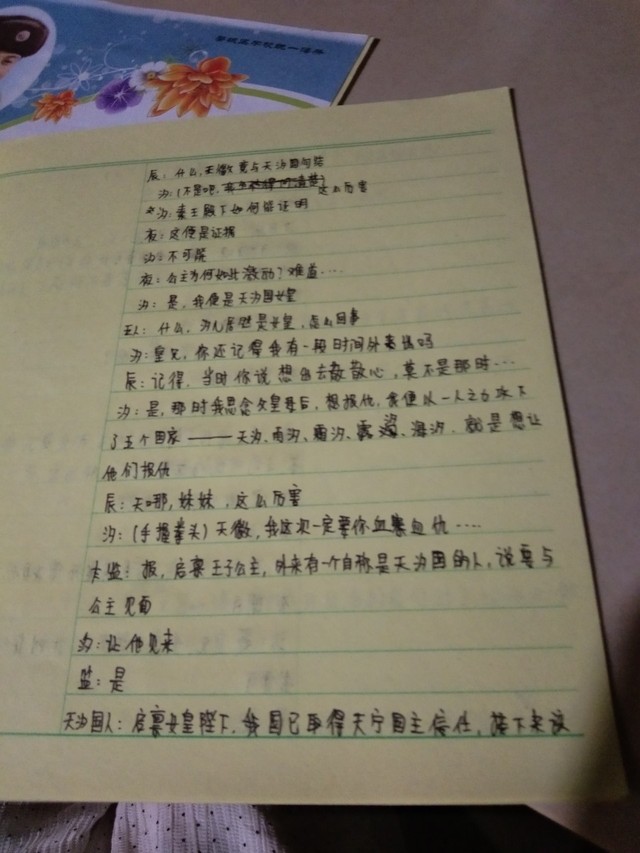 辰：什么，天徽竟与天汐国勾结
汐：(不是吧，这么厉害
汐：秦王殿下如何能证明
夜：这便是证据
汐：不可能
夜：公主为何如此激动？难道····
汐：是，我便是天汐国女皇
王人：什么，汐儿居然是女皇，怎么回事
汐：皇兄，你还记得我有一段时间外离宫吗
辰：记得，当时你说想出去散散心，莫不是那时···
汐：是，那时我思念父皇母后，想报仇，我便以一人之力攻下
了五个国家——天汐、雨汐、霜汐、露汐、海汐．就是想让
他们报仇
辰：天哪，妹妹，这么厉害
汐：(手握拳头)天徽，我这次一定要你血债血偿····
太监：报，启禀王子公主，外来有一个自称是天汐国的人，说要与
公主见面
汐：让他见来
监：是
天汐国人：启禀女皇陛下，我国已取得天宁国主信任，接下来该